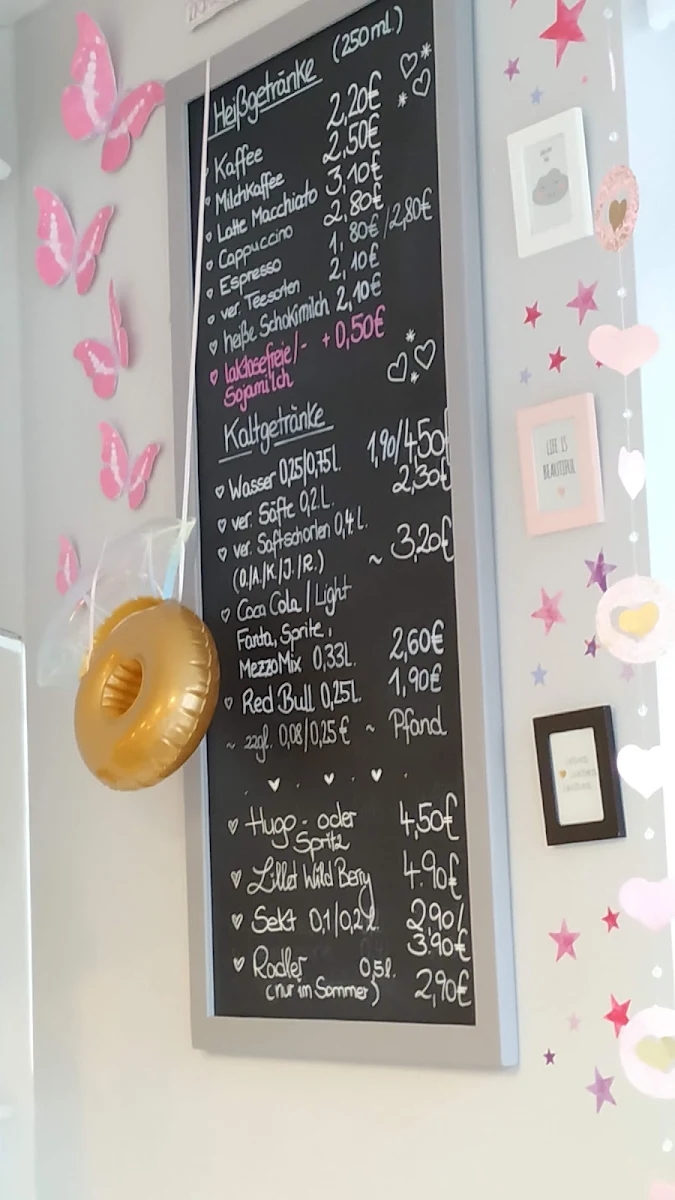 Heißgetränke (250ml)
Kaffee 2,20€
Milchkaffee 2,50€
Latte Macchiato 3,10€
Cappuccino 2,80€
Espresso 1,80€/2,80€
ver. Teesorten 2,10€
heiße Schokimilch 2,10€
laktosefreie/- +0,50€
Sojamilch
Kaltgetränke
Wasser 0,25/0,75l. 1,90/4,50€
ver. Säfte 0,2l. 2,30€
ver. Saftschorlen 0,4l.
(O./A./K./J./R.) ~ 3,20€
Coca Cola / Light
Fanta, Sprite,
MezzoMix 0,33l. 2,60€
Red Bull 0,25l. 1,90€
~ zzgl. 0,08/0,25€ ~ Pfand
Hugo - oder 4,50€
Spritz
Lillet Wild Berry 4.90€
Sekt 0,1/0,2l. 2,90/
3.90€
Radler 0,5l.
(nur im Sommer) 2,90€
LIFE IS
BEAUTIFUL